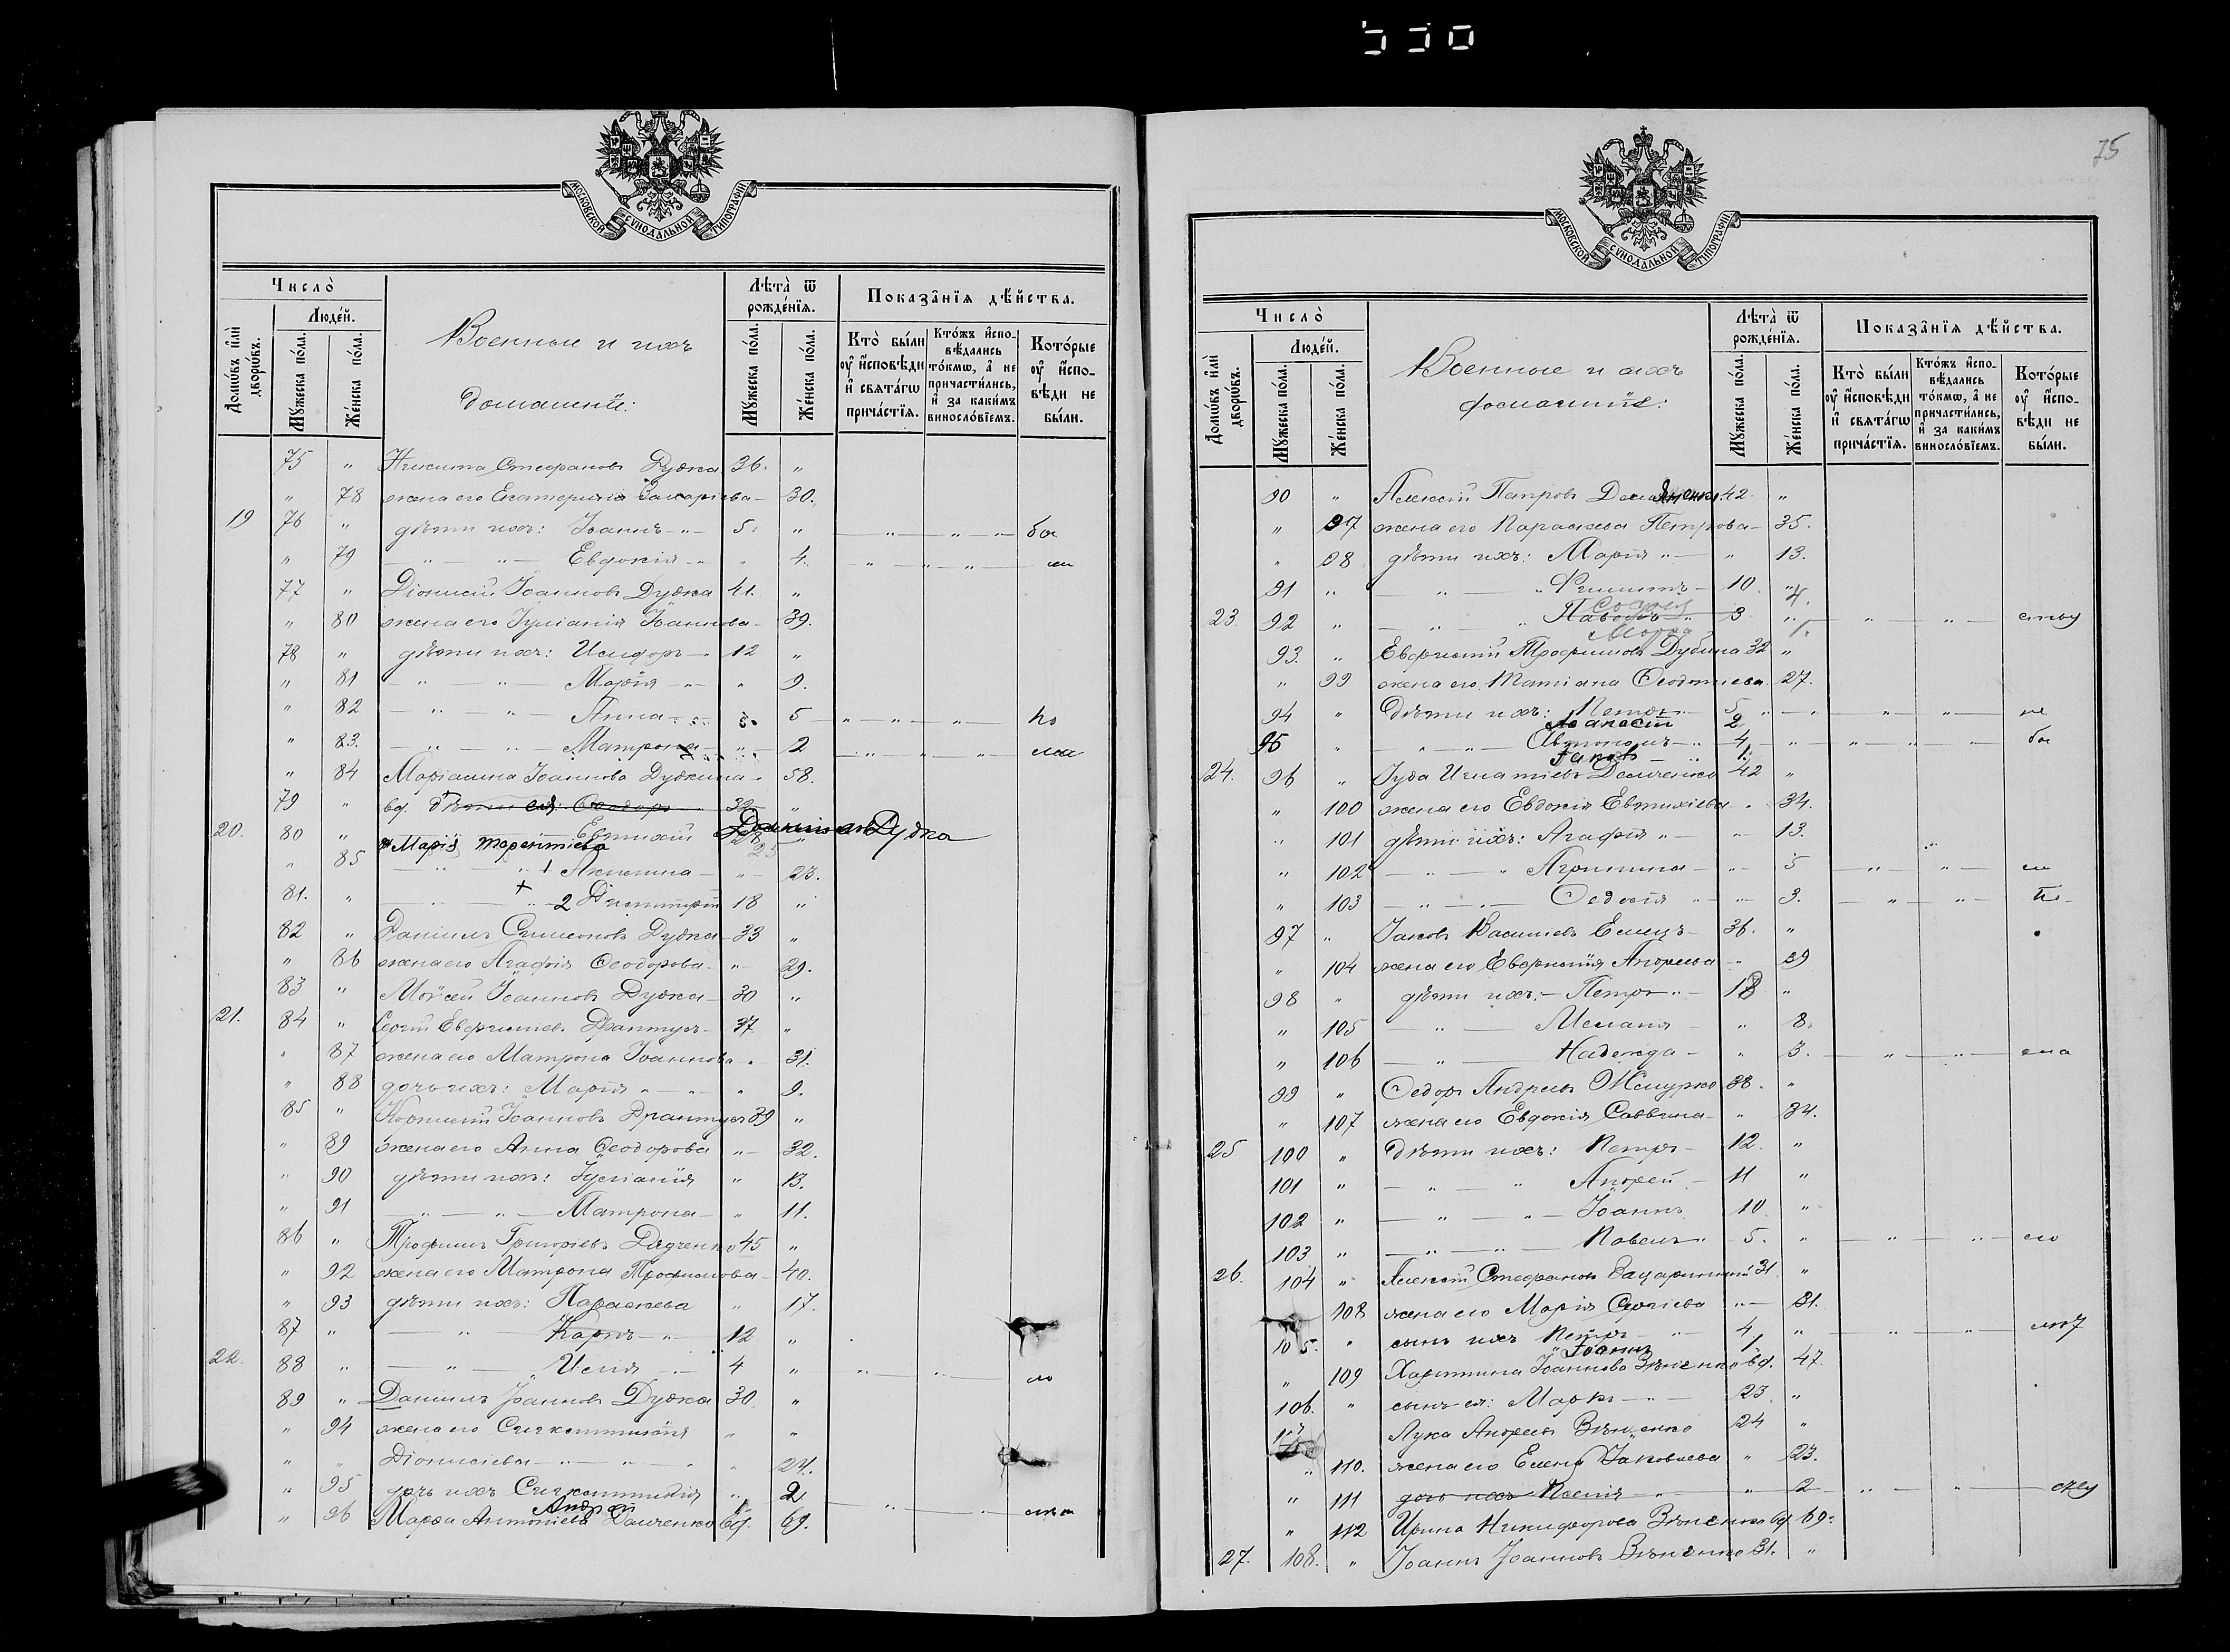 75
МОСКОВСКОЙ СѴНОДАЛЬНОЙ ТИПОГРАФІИ
Число̀
Домѡ́въ и҆лѝ дворѡ́въ.
Люде́й.
Мꙋ́жеска по́ла.
Же́нска по́ла.
Военные и ихъ
домашніе:
Лѣта̀ ѿ рожде́нїѧ.
Мꙋ́жеска по́ла.
Же́нска по́ла.
Показа̑нїѧ дѣ́йства.
Кто̀ бы́ли ᲂу҆ и҆́сповѣди и҆ свѧта́гѡ прича́стїѧ.
Кто́жъ и҆спо-вѣ́дались то́кмѡ, а҆ не причасти́лись, и҆ за каки́мъ винослоⷡ҇вїемъ.
Кото́рые ᲂу҆ и҆́спо-вѣди не бы́ли.
75 " Никита Стефановъ Дудка 36. "
" 78 жена его Екатерина Захаріева — 30.
19 76 " дѣти ихъ: Іоаннъ 5. " бы
" 79 Евдокія " 4.
77 " Діонисій Іоанновъ Дудка 41. "
" 80 жена его Іуліанія Іоаннова — 39.
78 " дѣти ихъ: Исидоръ 12 "
" 81 Марія " 9.
" 82 Анна 5 по
" 83. Матрона " 2
" 84 Маріанна Іоаннова Дудкина 58.
79 " вд. дѣти ея: Ѳеодоръ 32 "
20. 80 " Евтихій Даниилъ Дудка
Марія Терентіева 25
" 85 Акилина " 23.
81. " 2 Димитрій 18 "
82 " Даніилъ Симеоновъ Дудка 33 "
" 86 жена его Агафія Ѳеодорова " 29.
83 " Моѵсей Іоанновъ Дудка 30 "
21. 84 " Сергій Евфиміевъ 37 "
" 87 жена его Матрона Іоаннова 31.
" 88 дочь ихъ: Марія " 9.
85 " Іоанновъ 39 "
" 89 жена его Анна Ѳеодорова " 32.
" 90 дѣти ихъ: Іуліанія " 13.
" 91 Матрона " 11.
86 " Трофимъ Григоріевъ Дядченко 45 "
" 92 жена его Матрона Трофимова 40.
" 93 дѣти ихъ: Параскева " 17.
87 " Карпъ 12 "
22. 88 " Илія 4 " ло
89 " Даніилъ Іоанновъ Дудка 30 "
" 94 жена его Синклитикія " "
" " Діонисіева " 24.
" 95 дочь ихъ Синклитикія " 2
Андрей 1
" 96 Марѳа Антоніева Данченко вд. 69.
МОСКОВСКОЙ СѴНОДАЛЬНОЙ ТИПОГРАФІИ
Число̀
Домѡ́въ и҆лѝ дворѡ́въ.
Люде́й.
Мꙋ́жеска по́ла.
Же́нска по́ла.
Военные и ихъ
домашніе:
Лѣта̀ ѿ рожде́нїѧ.
Мꙋ́жеска по́ла.
Же́нска по́ла.
Показа̑нїѧ дѣ́йства.
Кто̀ бы́ли ᲂу҆ и҆́сповѣди и҆ свѧта́гѡ прича́стїѧ.
Кто́жъ и҆спо-вѣ́дались то́кмѡ, а҆ не причасти́лись, и҆ за каки́мъ винослоⷡ҇вїемъ.
Кото́рые ᲂу҆ и҆́спо-вѣди не бы́ли.
90 " Алексій Петровъ 42. "
" 97 жена его Параскева Петрова 35.
" 98 дѣти ихъ: Марія " 13.
91 " Филиппъ 10. "
Софія 4.
23. 92 " Павелъ 3 "
Марѳа 1.
93. " Евфимій Трофимовъ Дубина 32 "
" 99 жена его Татіана Ѳеодотіева 27.
94 " Дѣти ихъ: Петръ 5 " не
Аѳанасій 2
95 " Автономъ 4 " бы
Іаковъ 1.
24. 96 " Іуда Игнатіевъ Демченко 42 "
" 100 жена его Евдокія Евтихіева 34.
" 101 дѣти ихъ: Агафія " 13.
" 102 Агриппина " 5
" 103 Ѳедосія " 3.
97 " Іаковъ Василіевъ Емецъ 36. "
" 104 жена его Евфимія Андреева 29
98 " дѣти ихъ: Петръ 18 "
" 105 Меланія " 8.
" 106 Надежда " 3.
99 " Ѳедоръ Андреевъ Жмурко 38. "
" 107 жена его Евдокія Саввина " 34.
25 100 " Дѣти ихъ: Петръ 12. "
101 " Андрей 11 "
102 " Іоаннъ 10. "
103 " Павелъ 5. "
26. 104 " Алексій Стефановъ Зацаринный 31 "
108 жена его Марія Сергіева " 31.
105. " сынъ ихъ Петръ 4 "
Іоаннъ 1
" 109 Харитина Іоаннова вд. 47.
106. " сынъ ея: Маркъ 23 "
107 Лука Андреевъ 24 "
" 110. жена его Елена Іаковлева " 23.
" 111 дочь ихъ Ксенія " 2
" 112 Ирина Никифорова вд. 69.
27. 108. " Іоаннъ Іоанновъ 31. "